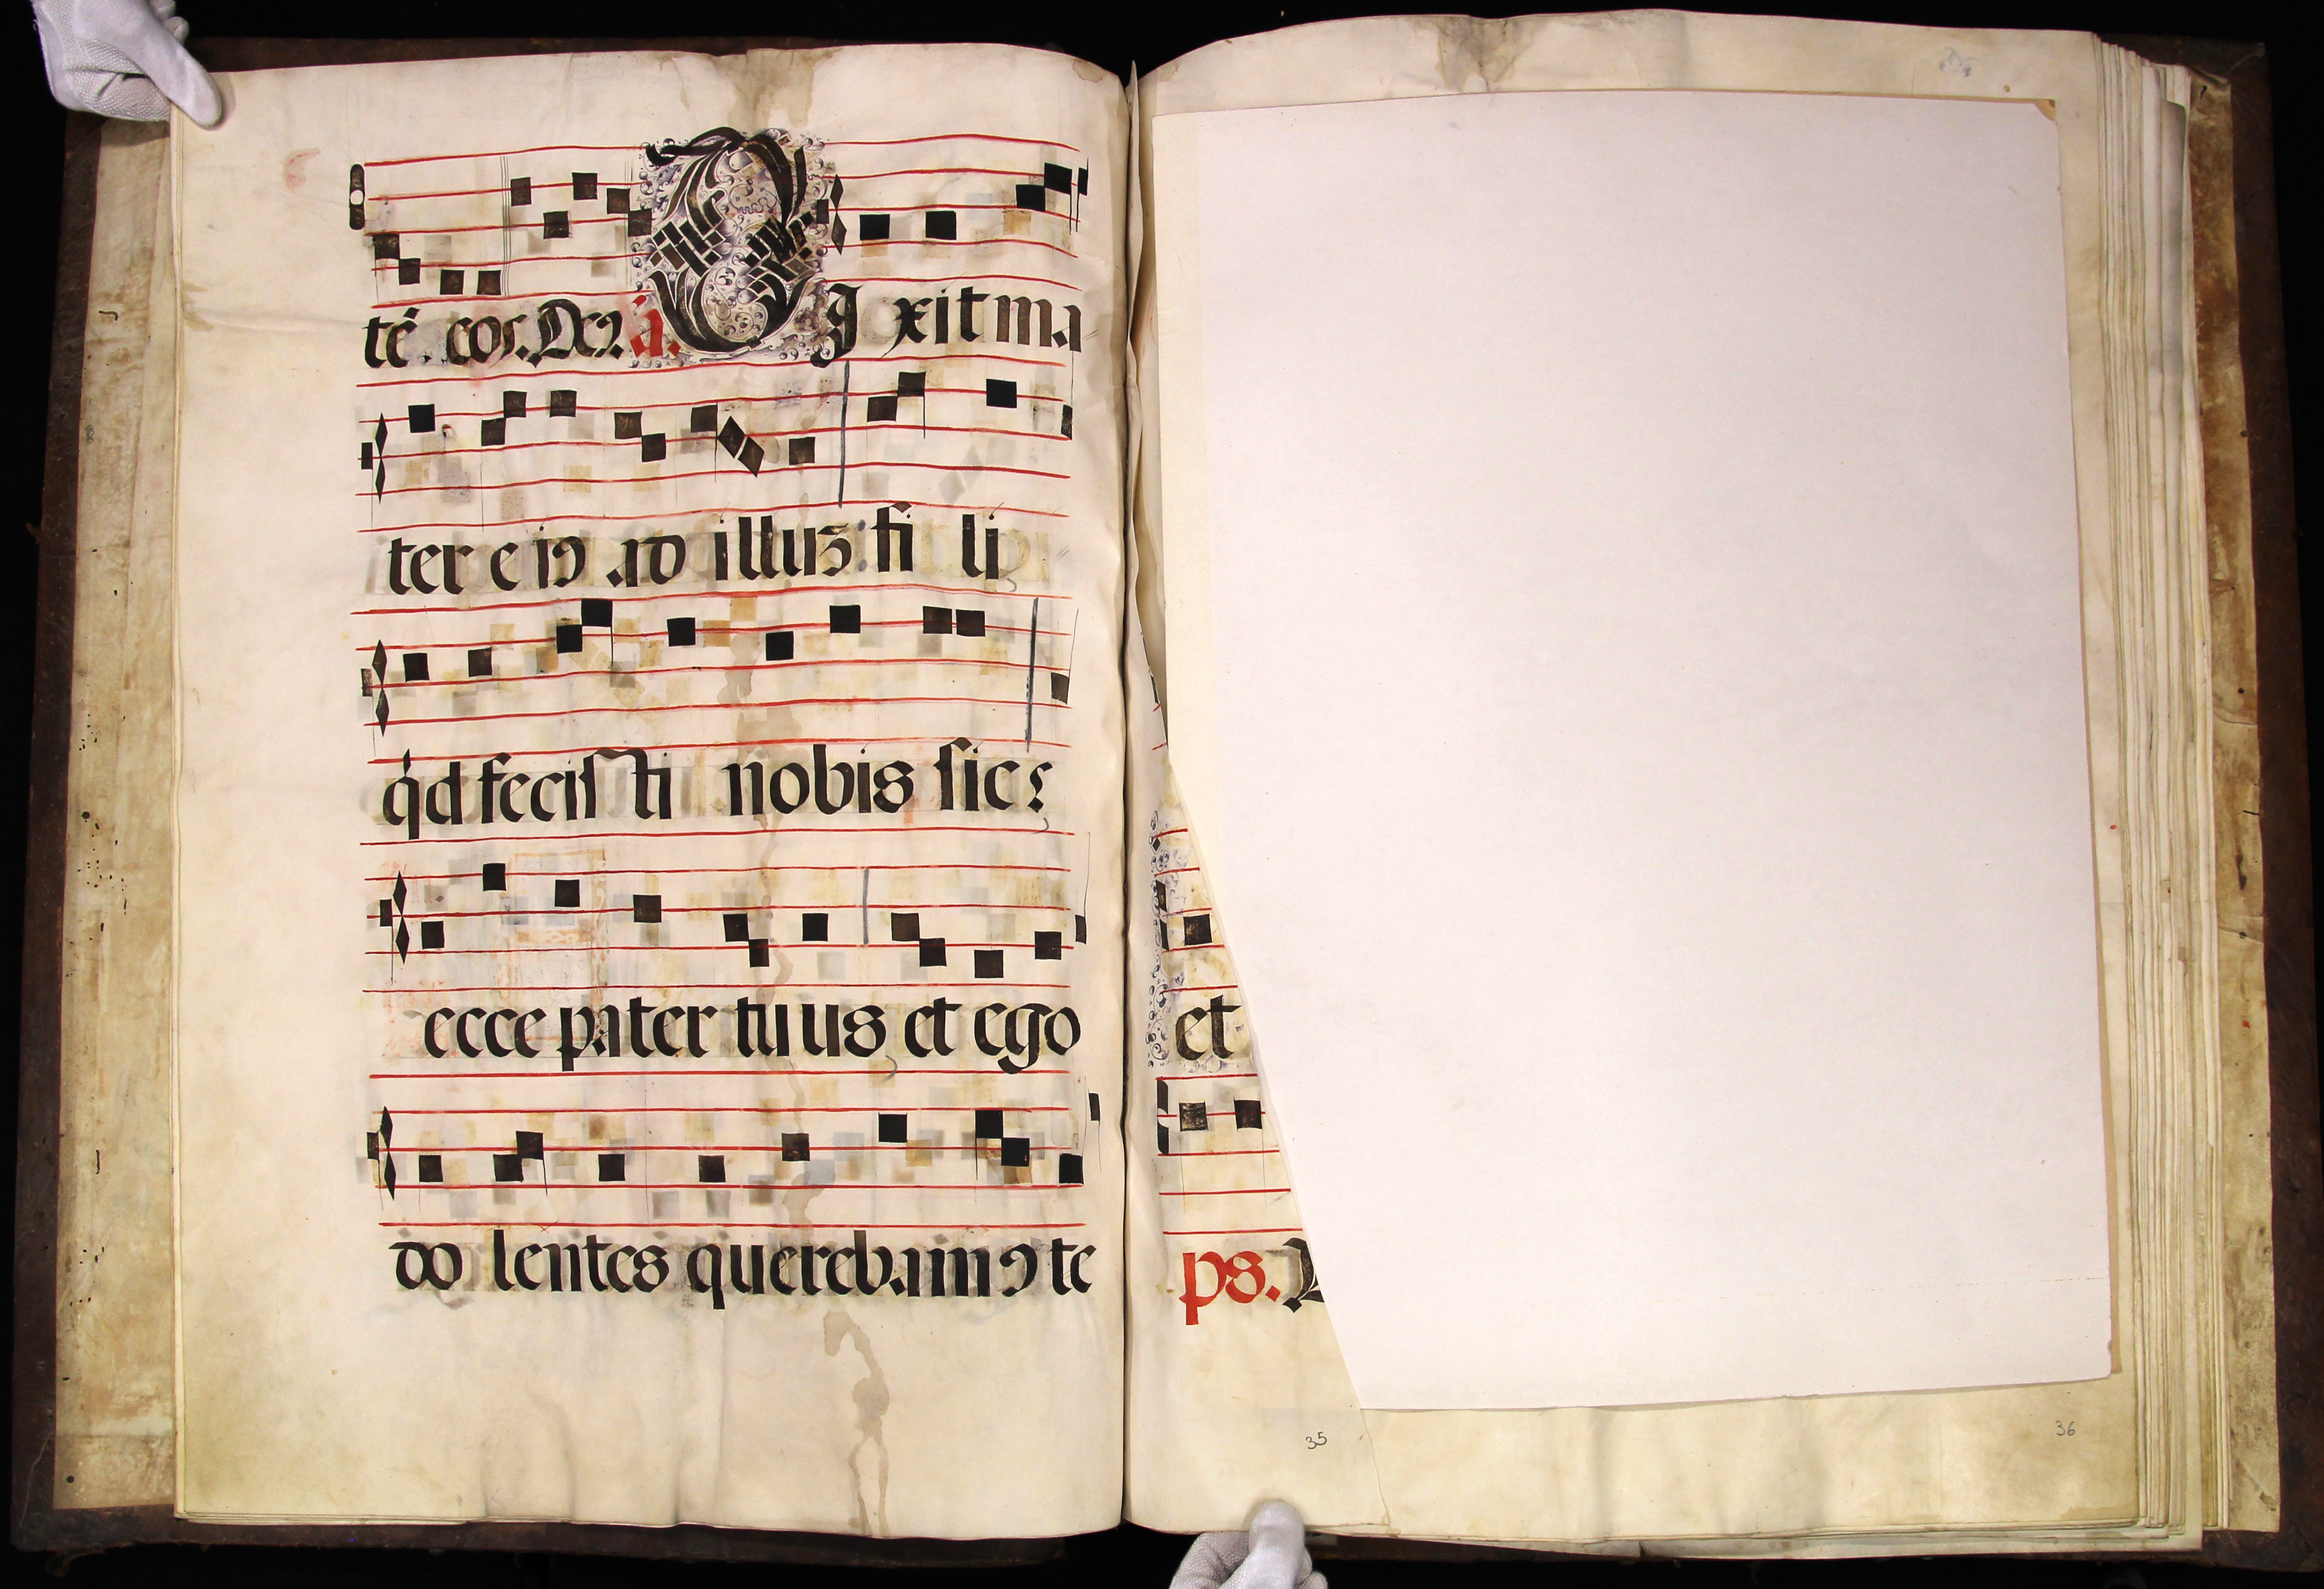 té. eos. Ps. a. DI xit ma
ter eiꝰ ad illuz: fi li
qd fecisti nobis sic:
ecce pater tuus et ego
do lentes querebamꝰ te
et
ps.
35
36